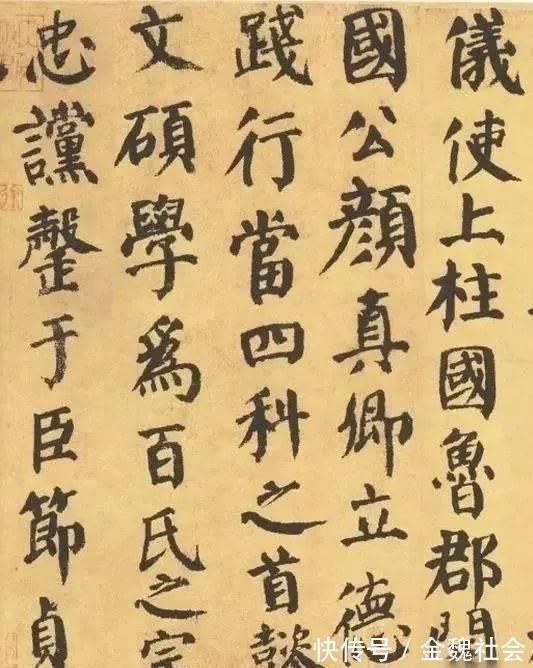 儀使上柱國魯郡開
國公顏真卿立德
踐行當四科之首懿
文碩學爲百氏之宗
忠讜罄于臣節貞
快传号 / 金魏社会